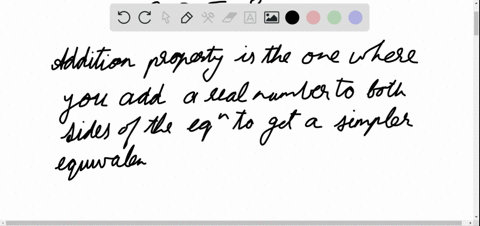 Addition property is the one where
you add a real number to both
sides of the eqⁿ to get a simpler
equivalen